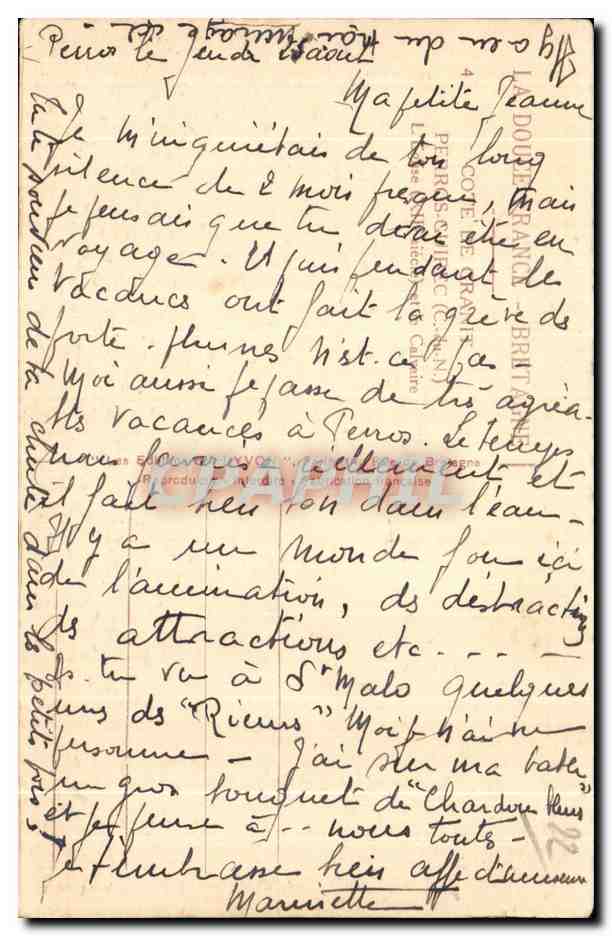 Perros le Jeudi 25 août
Ma petite Jeanne
Je m'inquiétais de ton long
silence de 2 mois presque, mais
je pensais que tu devais être en
voyage. Et puis pendant les
vacances ont fait la grève des
porte-plumes n'est-ce pas !
Moi aussi je passe de très agréa-
bles vacances à Perros. Le temps
nous favorise tellement et
il fait bien bon dans l'eau -
Il y a un monde fou ici
de l'animation, des distractions
des attractions etc - - - -
As-tu vu à St Malo quelques
uns des "Rieurs" Moi je n'ai vu
personne - J'ai sur ma table
un gros bouquet de "Chardons bleus"
et je pense à -- nous toutes -
Je t'embrasse bien affectueusement
Mariette
Il y a eu du
de la chute dans les petits pois,
LA DOUCE FRANCE - BRETAGNE
4 COTE DE GRANIT
PERROS-GUIREC (C.-du-N.)
et le Calvaire
Les Editions d'Art "YVON"
Reproduction interdite - Fabrication française
CPAPHIL
22